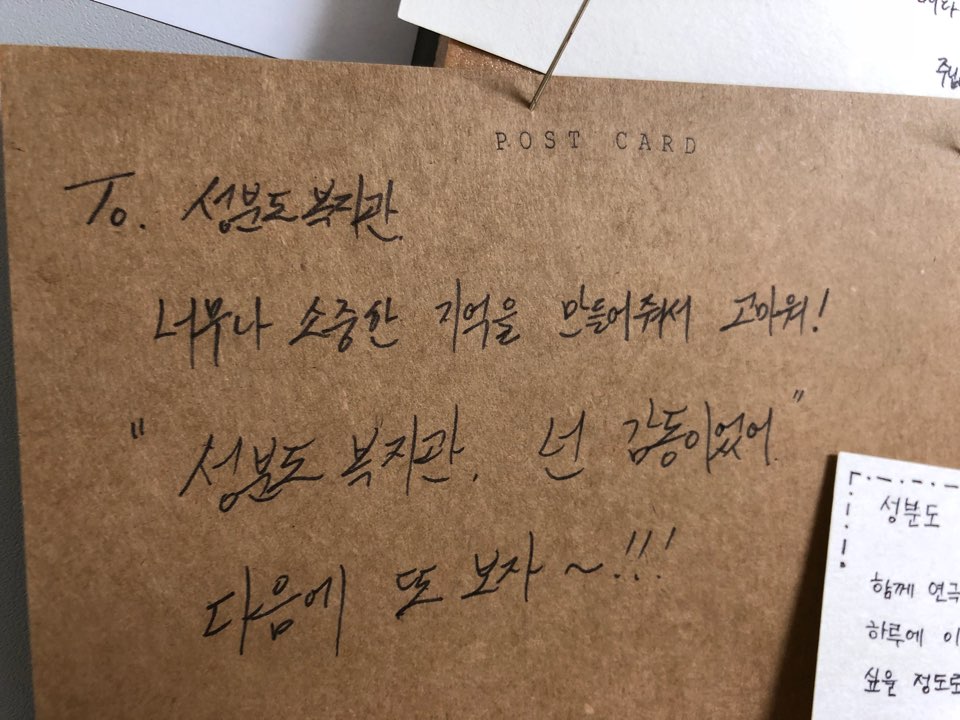 POST CARD
To. 성분도복지관.
너무나 소중한 기억을 만들어줘서 고마워!
" 성분도 복지관. 넌 감동이었어. "
다음에 또 보자 ~!!!
성분도
함께 연극
하루에 이
싶을 정도로